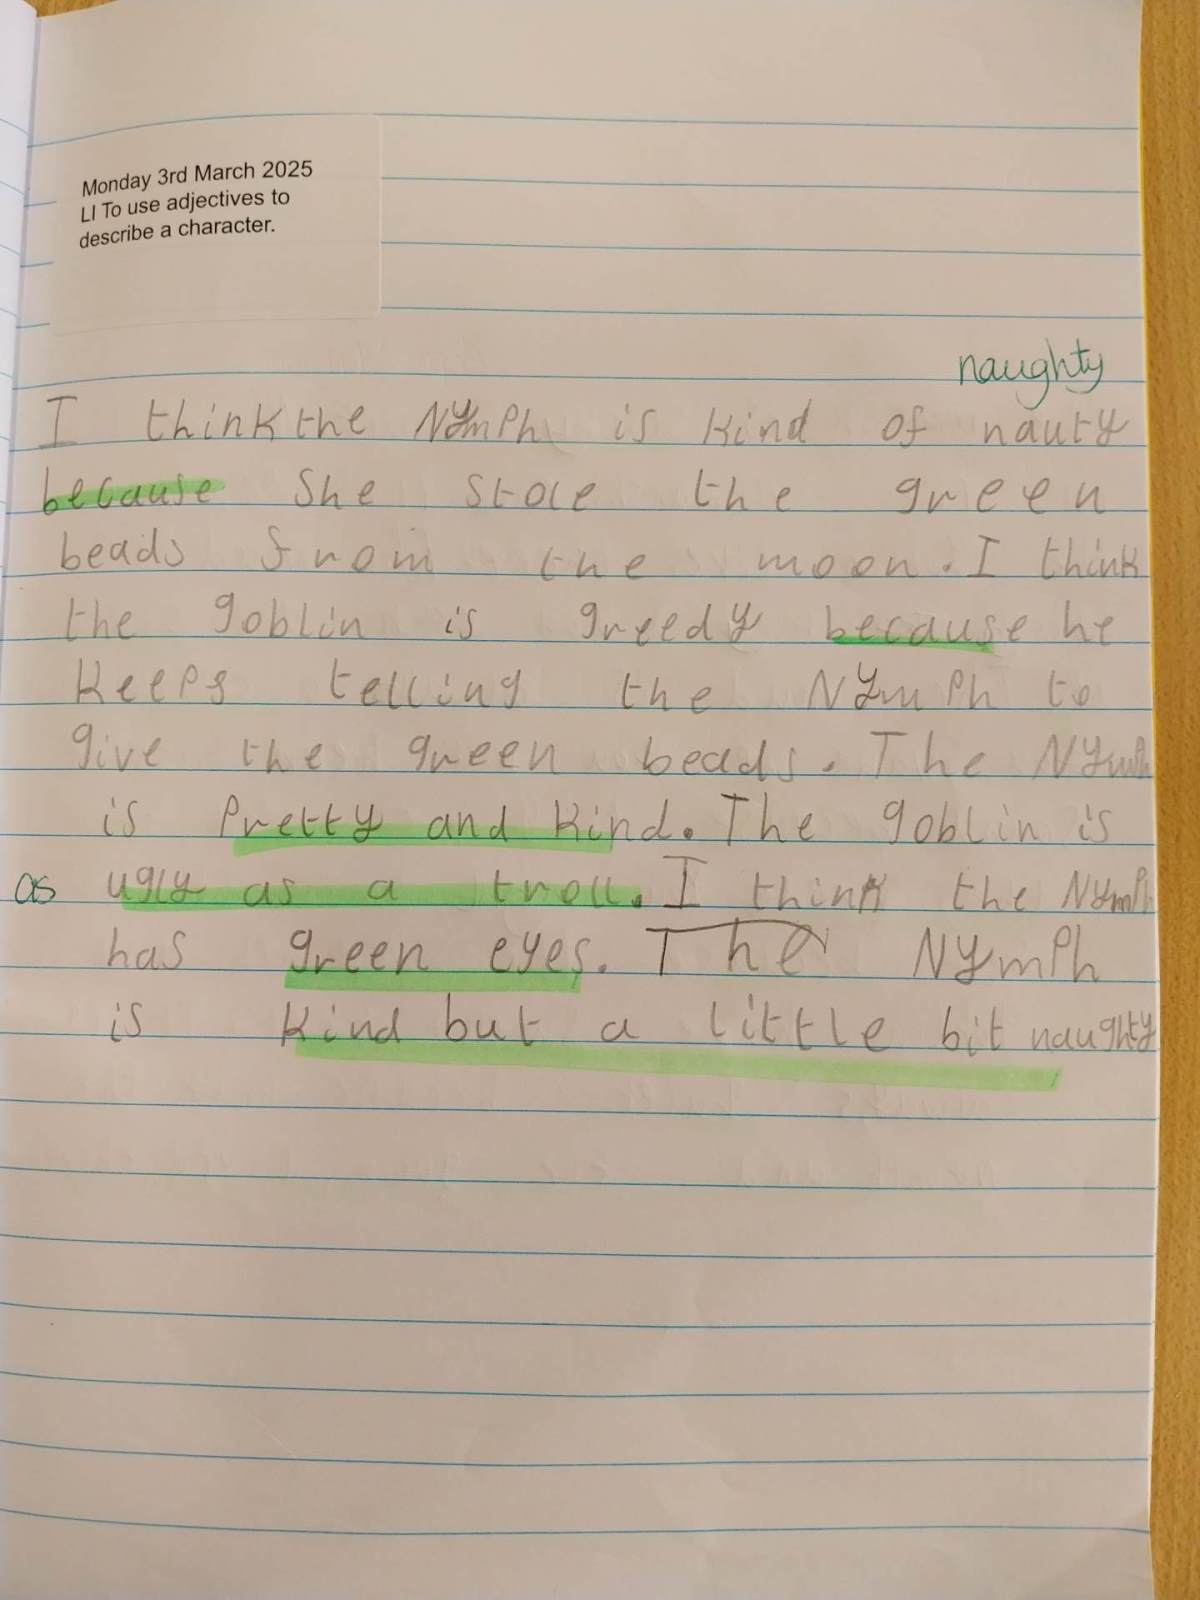 Monday 3rd March 2025
LI To use adjectives to
describe a character.
naughty
I think the Nymph is kind of nauty
because She Stole the green
beads from the moon. I think
the goblin is greedy because he
keeps telling the Nymph to
give the green beads. The Nymph
is Pretty and kind. The goblin is
as ugly as a troll. I think the Nymph
has green eyes. The Nymph
is kind but a little bit naughty